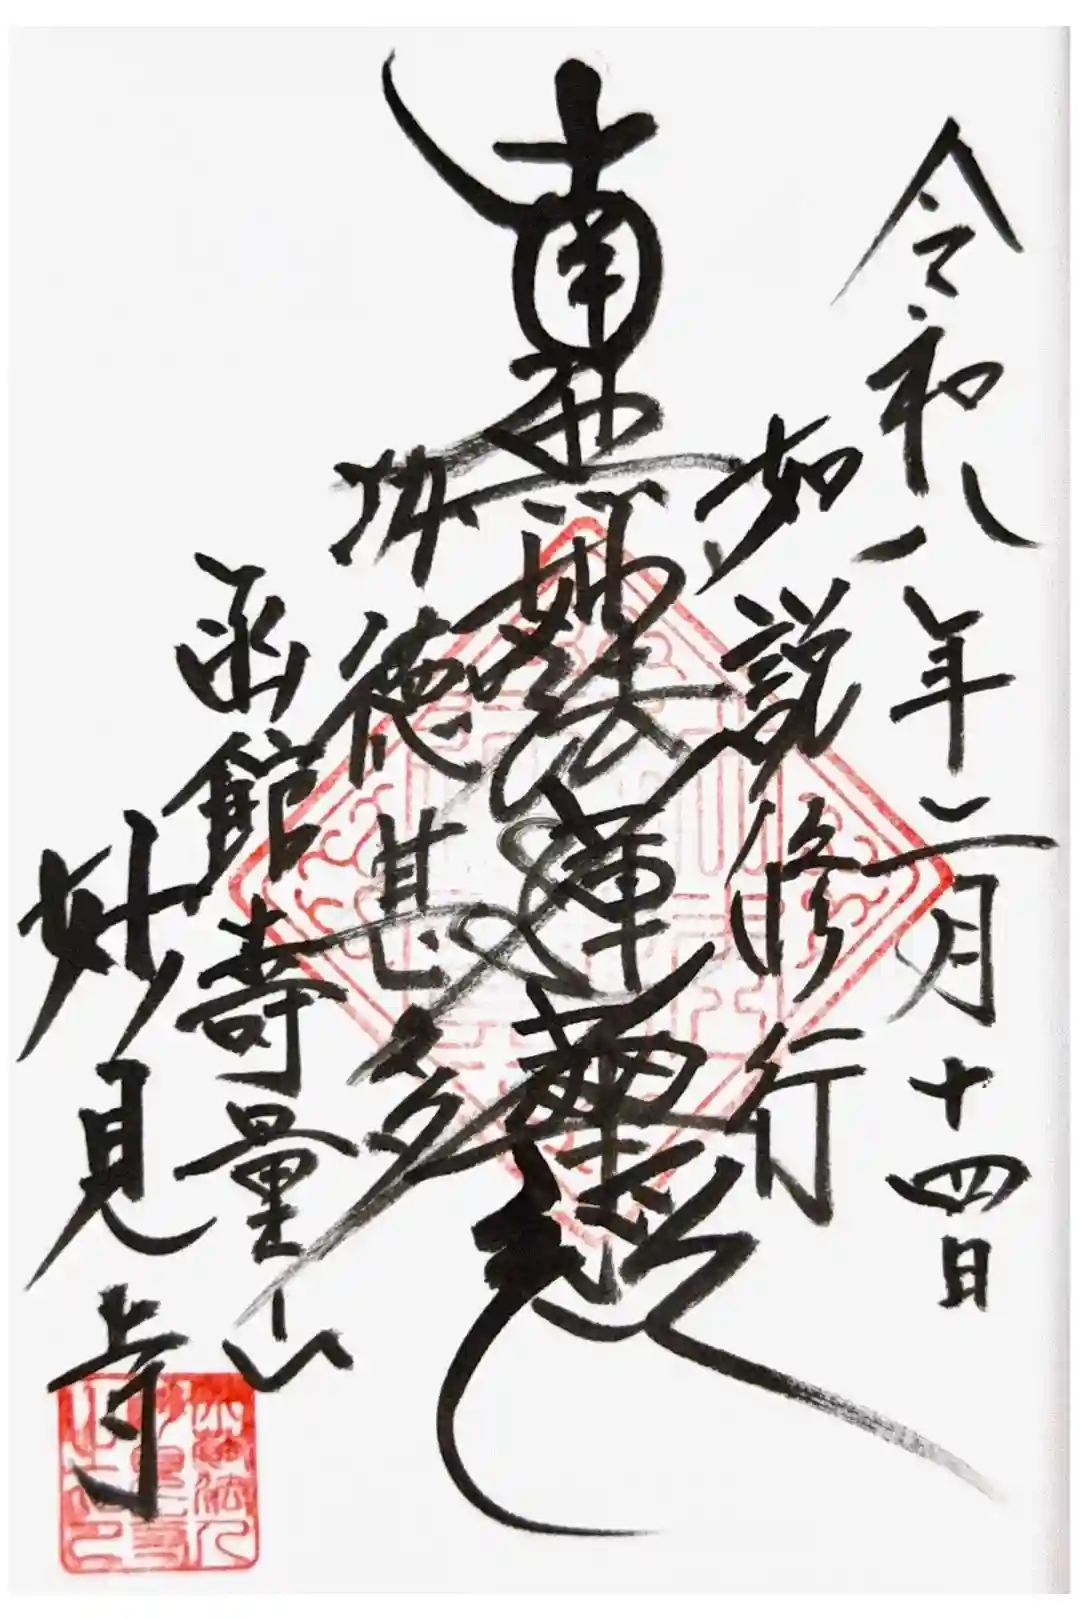 令和八年二月十四日
如説修行
南無妙法蓮華経
功徳甚多
函館壽量山
妙見寺